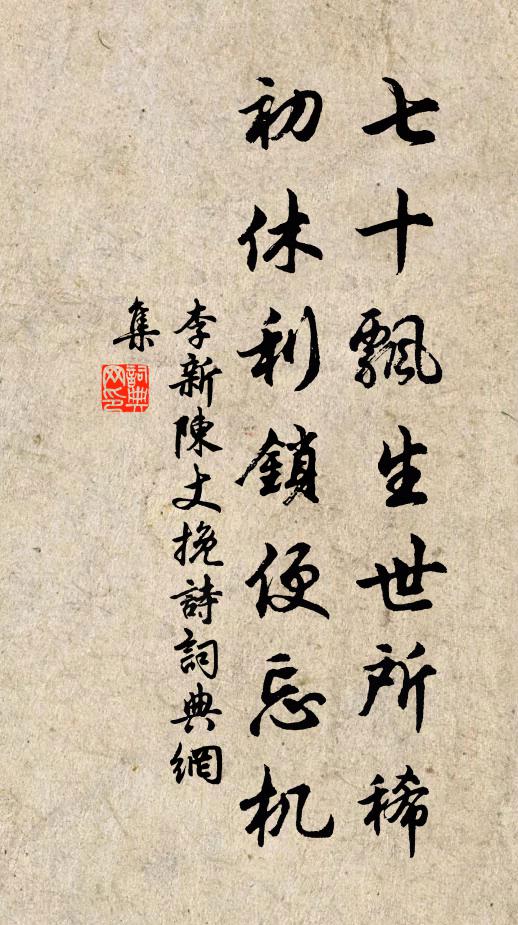 七十飄生世所稀
初休利鎖便忘机
李新陳丈挽詩詞典網
集
詞典網印